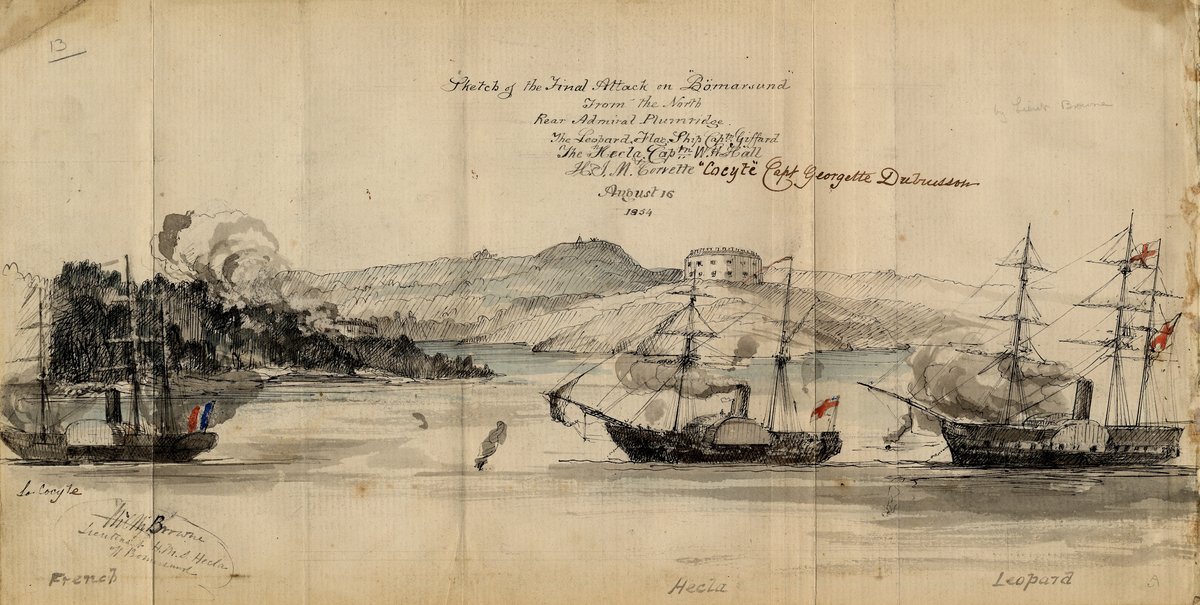 13
Sketch of the Final Attack on "Bömarsund"
From the North
Rear Admiral Plumridge.
The Leopard, Flag Ship Captn Giffard
The Hecla, Captn W. H. Hall
H. I. M. Corvette "Cocyte" Capt Georgette Dubuisson
August 16
1854
by Lieut Browne
Le Cocyte
Browne
Lieutenant H.M.S. Hecla
off Bomarsund
French
Hecla
Leopard